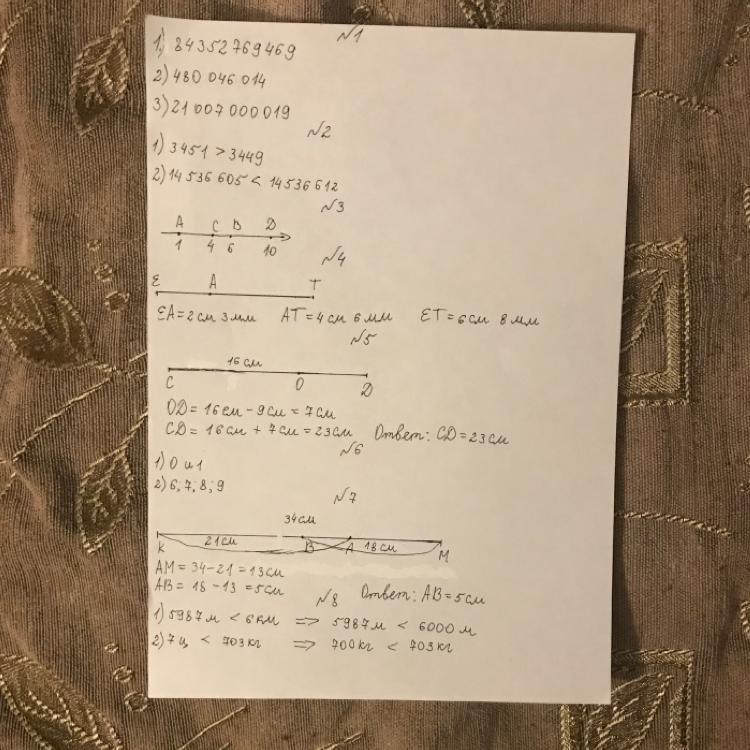 №1
1) 84352769469
2) 480 046 014
3) 21 007 000 019
№2
1) 3451 > 3449
2) 14 536 605 < 14536612
№3
A C B D
1 4 6 10
№4
E A T
EA = 2 см 3 мм AT = 4 см 6 мм ET = 6 см 8 мм
№5
16 см
C O D
OD = 16 см - 9 см = 7 см
CD = 16 см + 7 см = 23 см Ответ: CD = 23 см
№6
1) 0 и 1
2) 6; 7; 8; 9
№7
34 см
21 см 18 см
K B A M
AM = 34-21 = 13 см
AB = 18 - 13 = 5 см Ответ: AB = 5 см
№8
1) 5987 м < 6 км => 5987 м < 6000 м
2) 7 ц < 703 кг => 700 кг < 703 кг